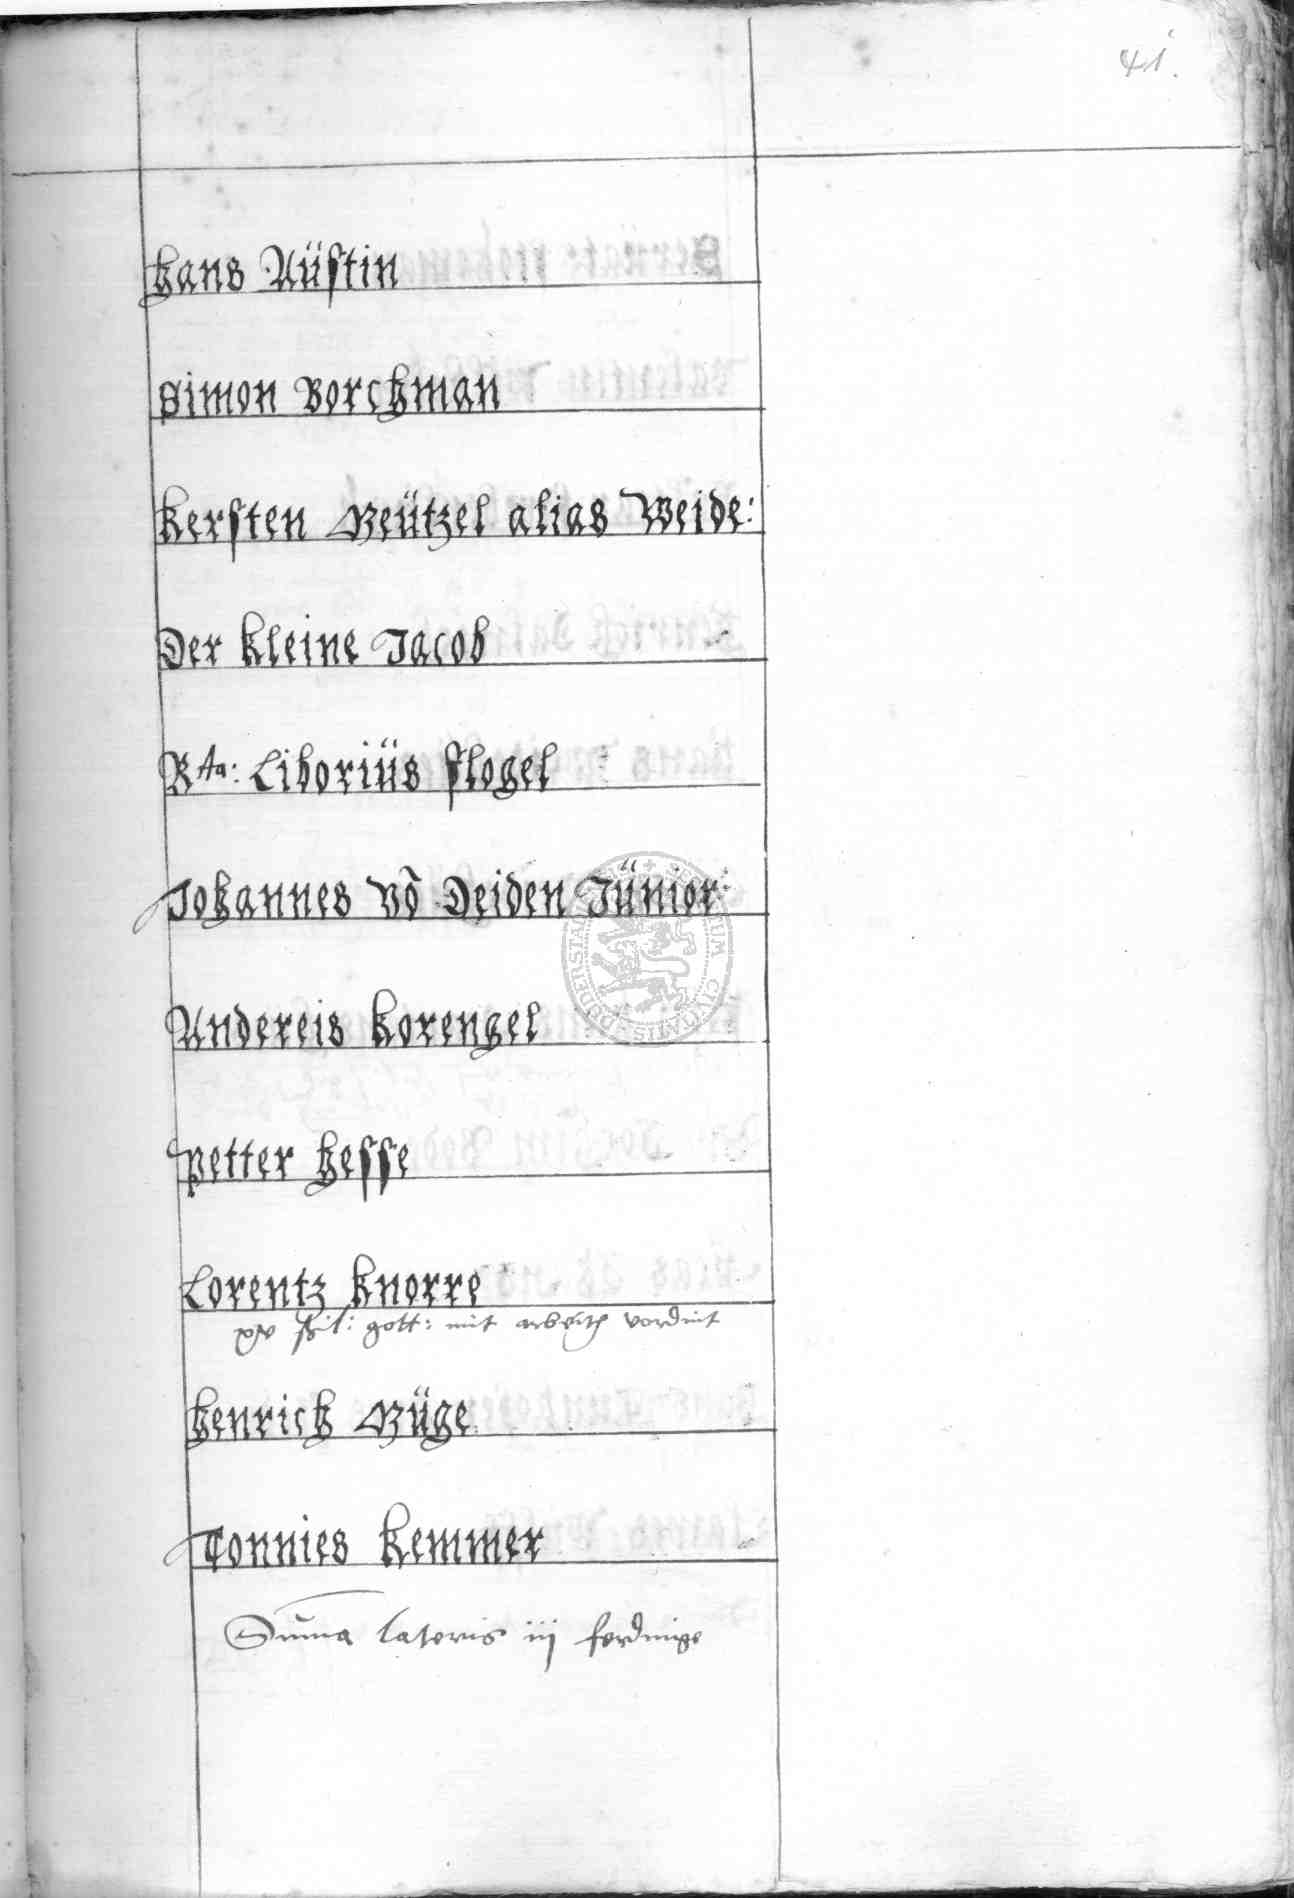 41.
Hans Aüstin
Simon Borchman
Kersten Beützel alias Weide:
Der kleine Jacob
Rta: Liboriüs Flogel
Johannes võ Deiden Jünior
Andereis Korengel
Petter Hesse
Lorentz Knorre
xv ßil: gott: mit arbeith vordint
Henrich Büge
Tonnies Kemmer
Suma lateris iij ferdinge